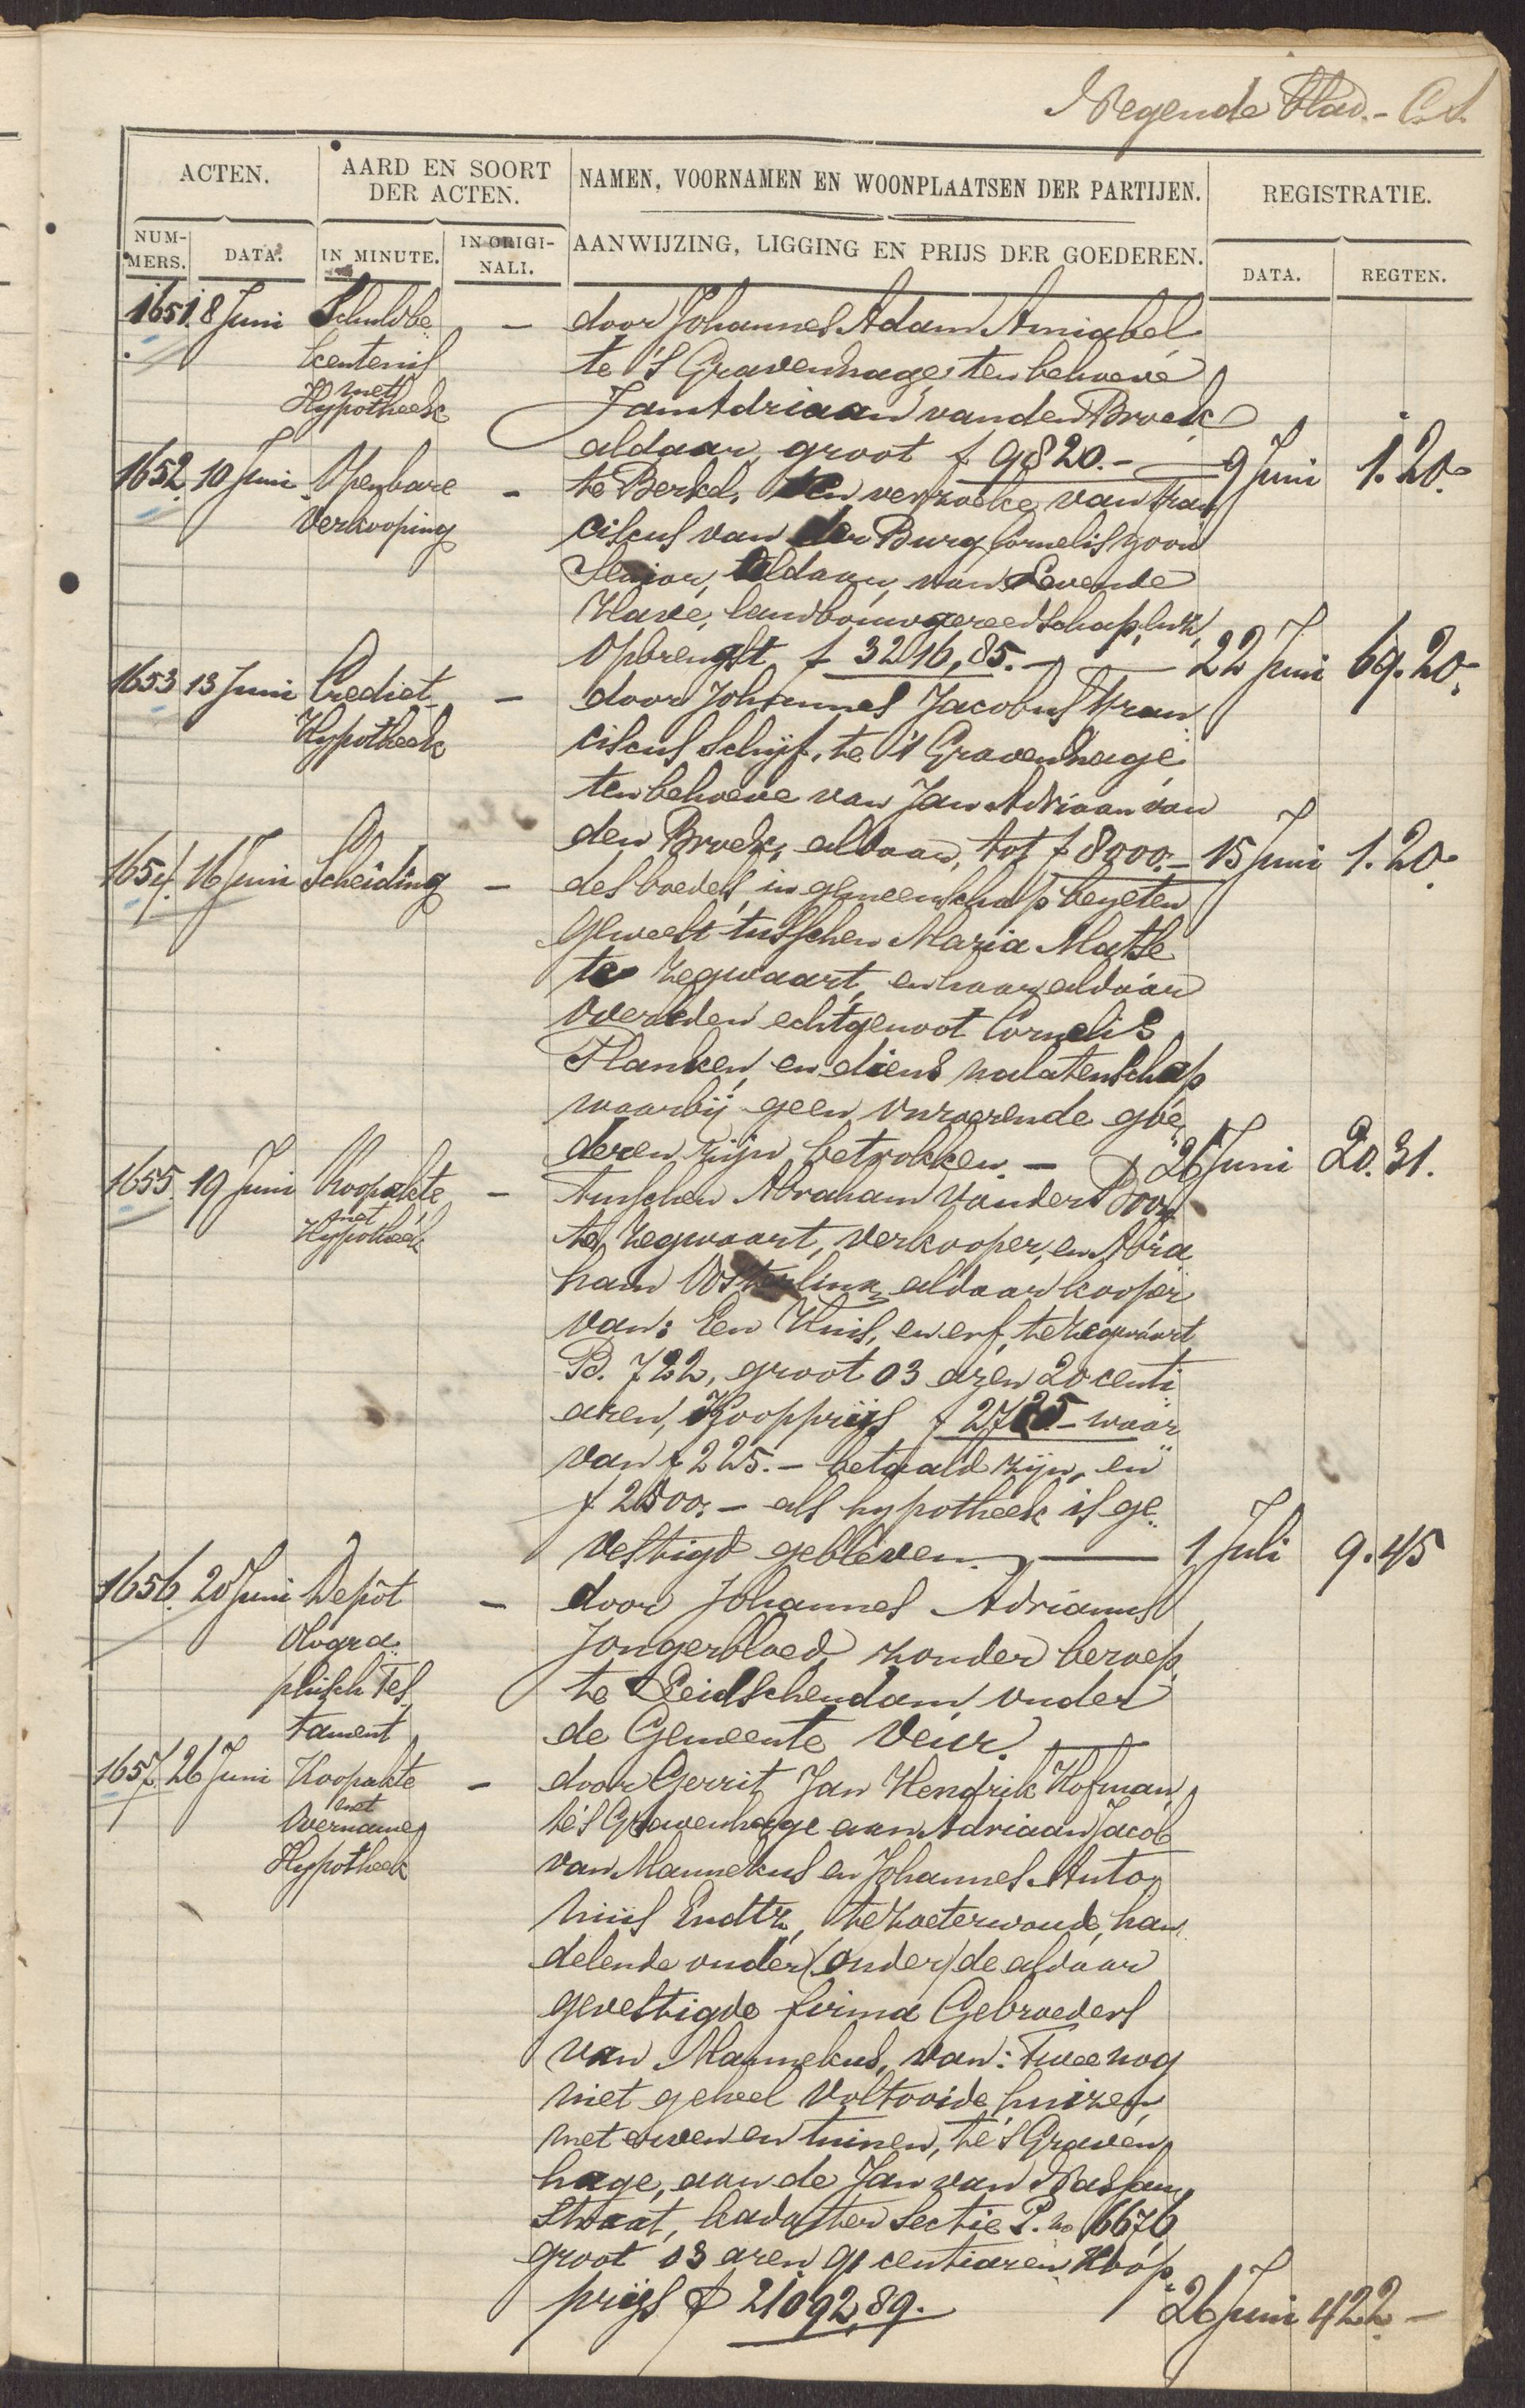 Negende blad. -
ACTEN.
AARD EN SOORT DER ACTEN.
NAMEN, VOORNAMEN EN WOONPLAATSEN DER PARTIJEN.
REGISTRATIE.
NUM-MERS.
DATA.
IN MINUTE.
IN ORIGI-NALI.
AANWIJZING, LIGGING EN PRIJS DER GOEDEREN.
DATA.
REGTEN.
1651. 8 Juni Schuldbe - door Johannes Adam Amiabel
kentenis te 's Gravenhage, ten behoeve
met Hypotheek Jan Adriaan van den Broek,
aldaar, groot f 9820.- 9 Juni 1.20.
1652. 10 Juni Openbare - te Berkel, ten verzoeke van Fran
Verkooping ciscus van der Burg Corneliszoon
Senior, aldaar, van Levende
Have, landbouwgereedschap, enz,
Opbrengst f 3216,85.- 22 Juni 69.20.
1653 13 Juni Crediet - door Johannes Jacobus Fran
Hypotheek ciscus Schijf, te 's Gravenhage,
ten behoeve van Jan Adriaan van
den Broek, aldaar, tot f 8000.- 15 Juni 1.20.
1654. 16 Juni Scheiding - des boedels, in gemeenschap bezeten
geweest tusschen Maria Matse
te Zegwaart, en haar aldaar
overleden echtgenoot Cornelis
Planken, en diens nalatenschap
waarbij geen onroerende goe
deren zijn betrokken - 26 Juni 20.31.
1655. 19 Juni Koopakte - tusschen Abraham van der
met Hypotheek te Zegwaart, verkooper, en Abra
ham Oosterlink aldaar kooper
van: Een Huis, en erf, te Zegwaart
B. 722, groot 03 aren 20 centi
aren, Koopprijs f 2725.- waar
van f 225.- betaald zijn, en
f 2500.- als hypotheek is ge
vestigd gebleven. 1 Juli 9.45
1656. 20 Juni Depôt - door Johannes Adrianus
Ologra Jongerbloed, zonder beroep,
phisch Tes te Leidschendam, onder
tament de Gemeente Veur.
1657. 26 Juni Koopakte - door Gerrit Jan Hendrik Hofman,
met Overname te 's Gravenhage aan Adriaan Jacob
Hypotheek van Mannekus en Johannes Anto
nius Endtz, te Zoeterwoude, han
delende onder (onder) de aldaar
gevestigde firma Gebroeders
van Mannekus, van: Twee nog
niet geheel voltooide huizen,
met erven en tuinen, te 's Graven
hage, aan de Jan van Nassau
straat, kadaster Sectie P. no 6676
groot 03 aren 91 centiaren Koop
prijs f 21092,89. 26 Juni 422.-